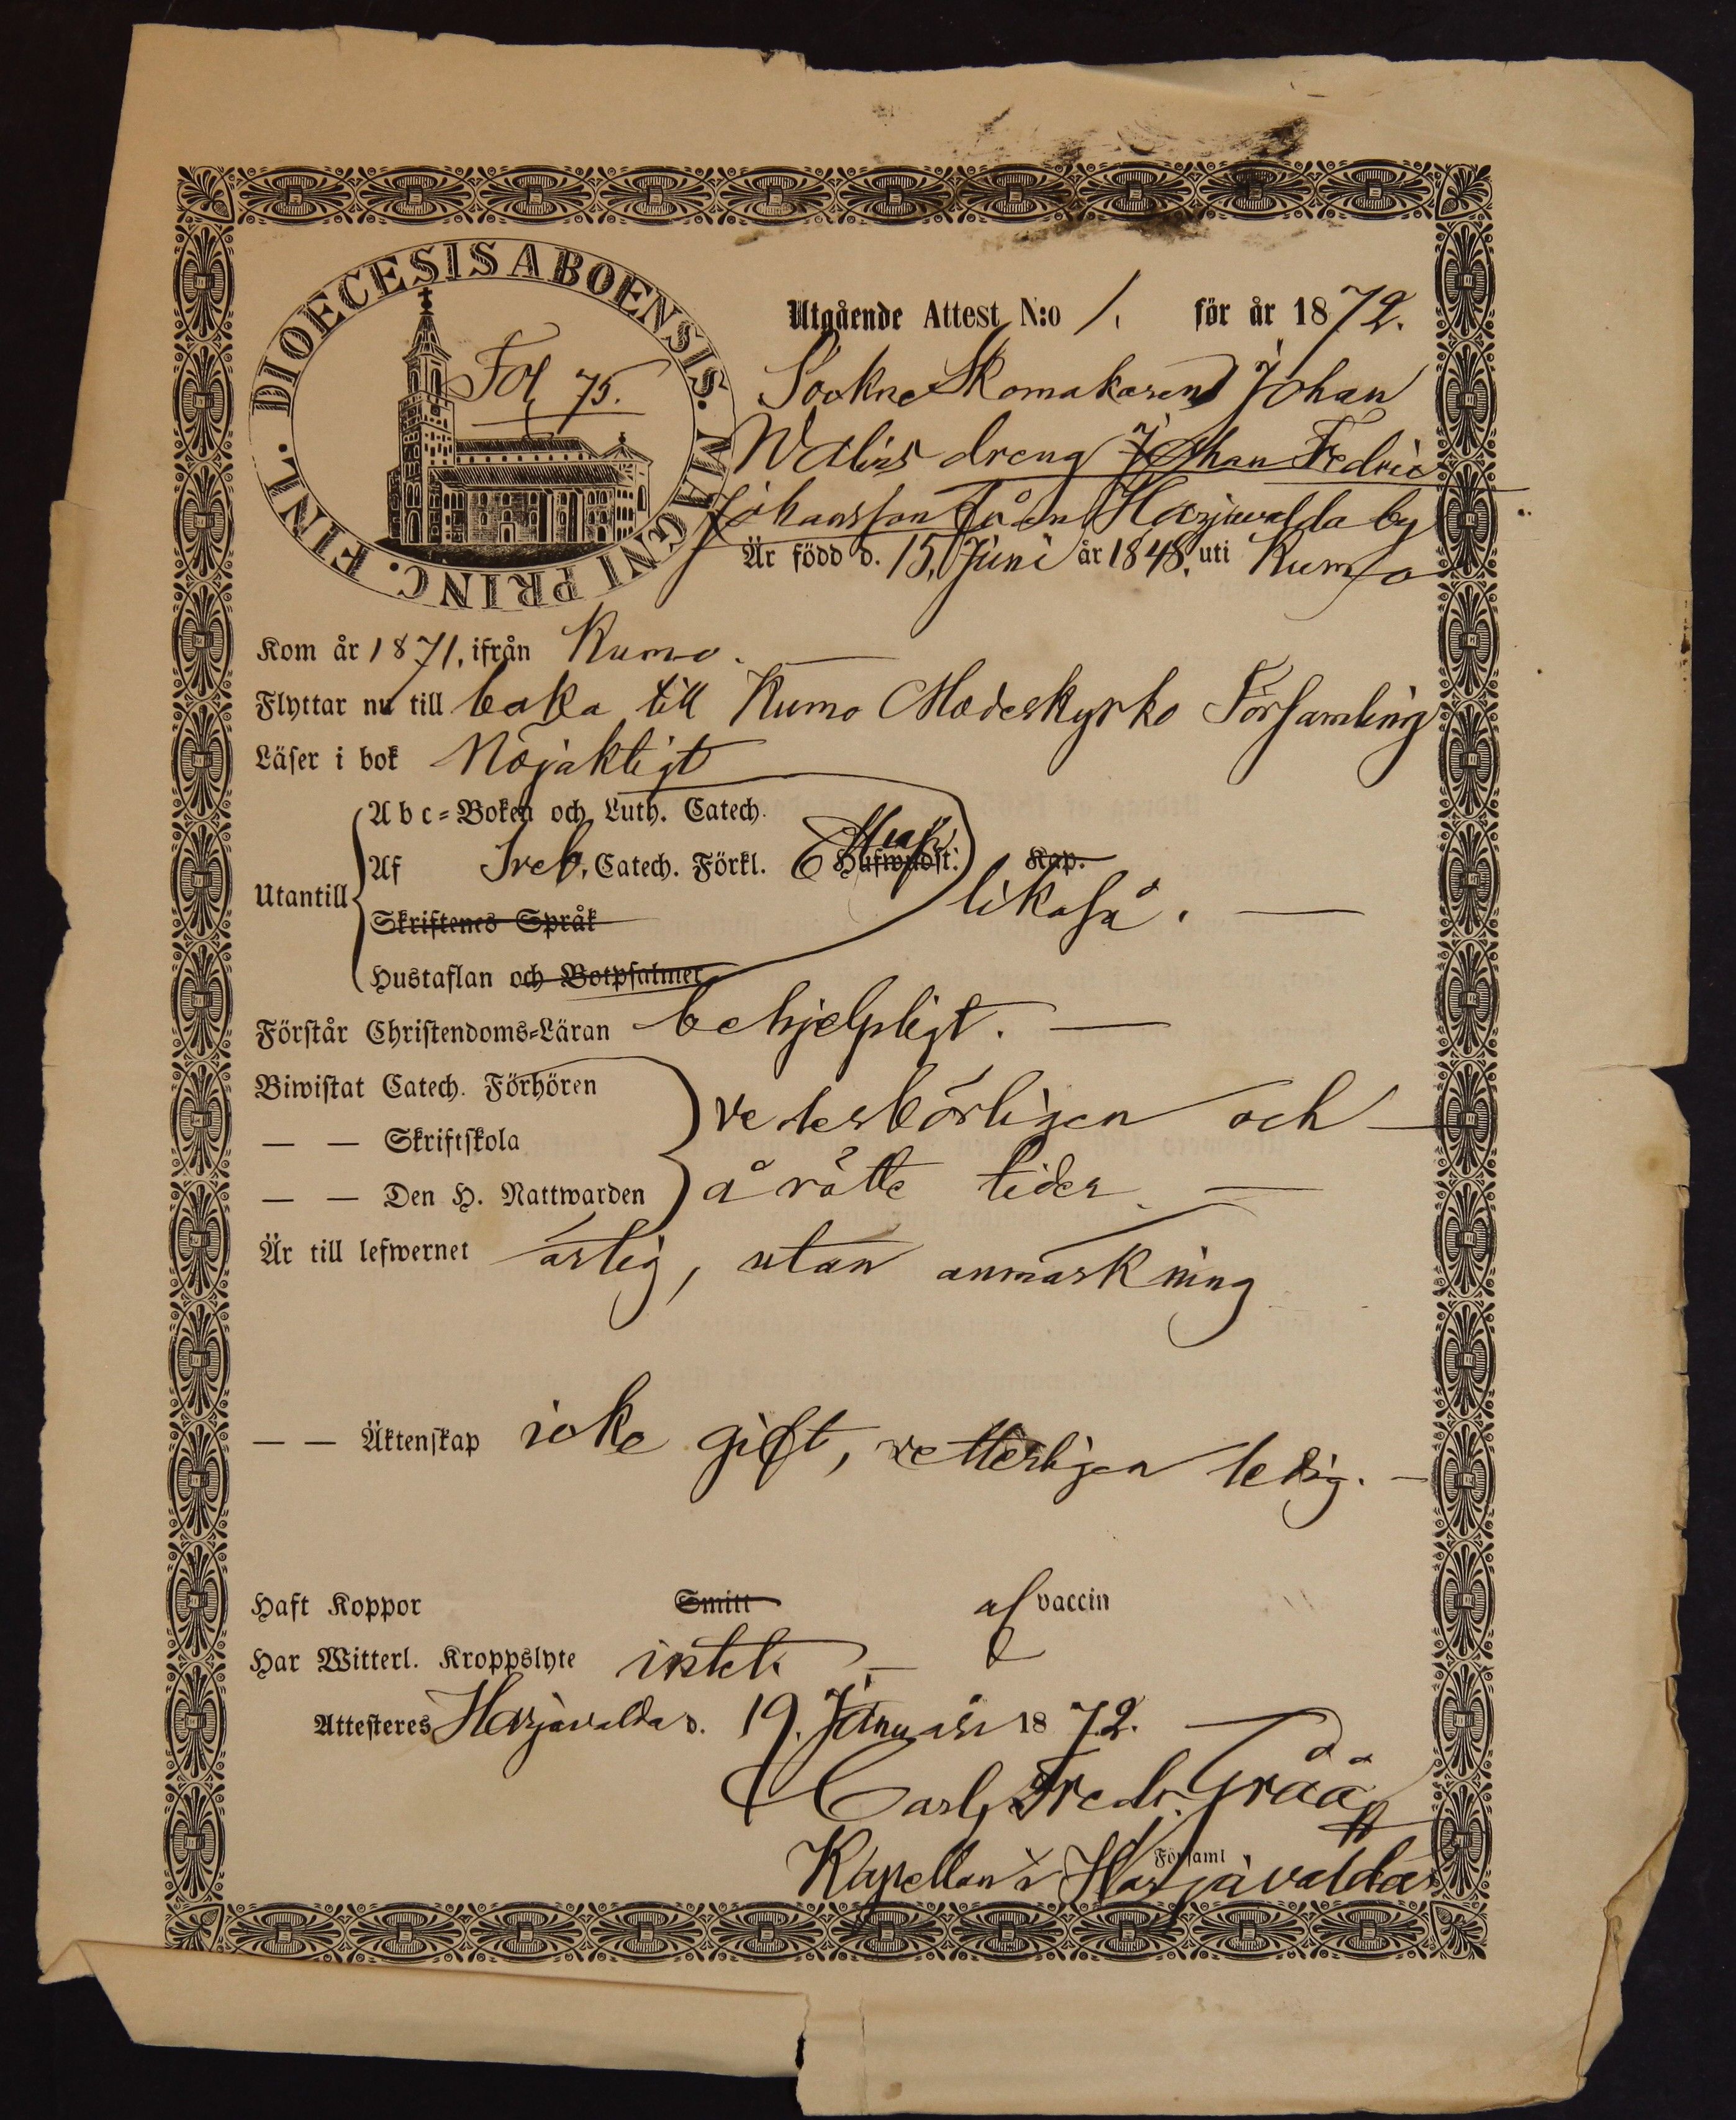 DIOECESIS ABOENSIS. MAGNI PRINC. FINL.
Fol. 75.
Utgående Attest N:o 1. för år 1872.
Sockne Skomakaren Johan
Walins dreng Johan Fredric
Johansson från Harjawalda by
Är född d. 15. Juni år 1848. uti Kumo
Kom år 1871. ifrån Kumo.
Flyttar nu till baka till Kumo Moderkyrko Församling
Läser i bok Nöjaktigt
Utantill
Abc-Boken och Luth. Catech.
Af Sveb. Catech. Förkl. Hufwudst. Kap.
likaså.
Skriftenes Språk
Hustaflan och Botpsalmer
Förstår Christendoms-Läran behjelpligt.
Biwistat Catech. Förhören
— — Skriftskola
vederbörligen och
— — Den H. Nattwarden å rätte tider.
Är till lefwernet ärlig, utan anmärkning
— — Äktenskap icke gift, vetterligen ledig.
Haft Koppor Smitt af vaccin
Har Witterl. Kroppslyte intet.
Attesteres Harjavalda d. 19. Januari 1872.
Carl Fredr. Gråå
Kapellan i Harjavalda
Församl